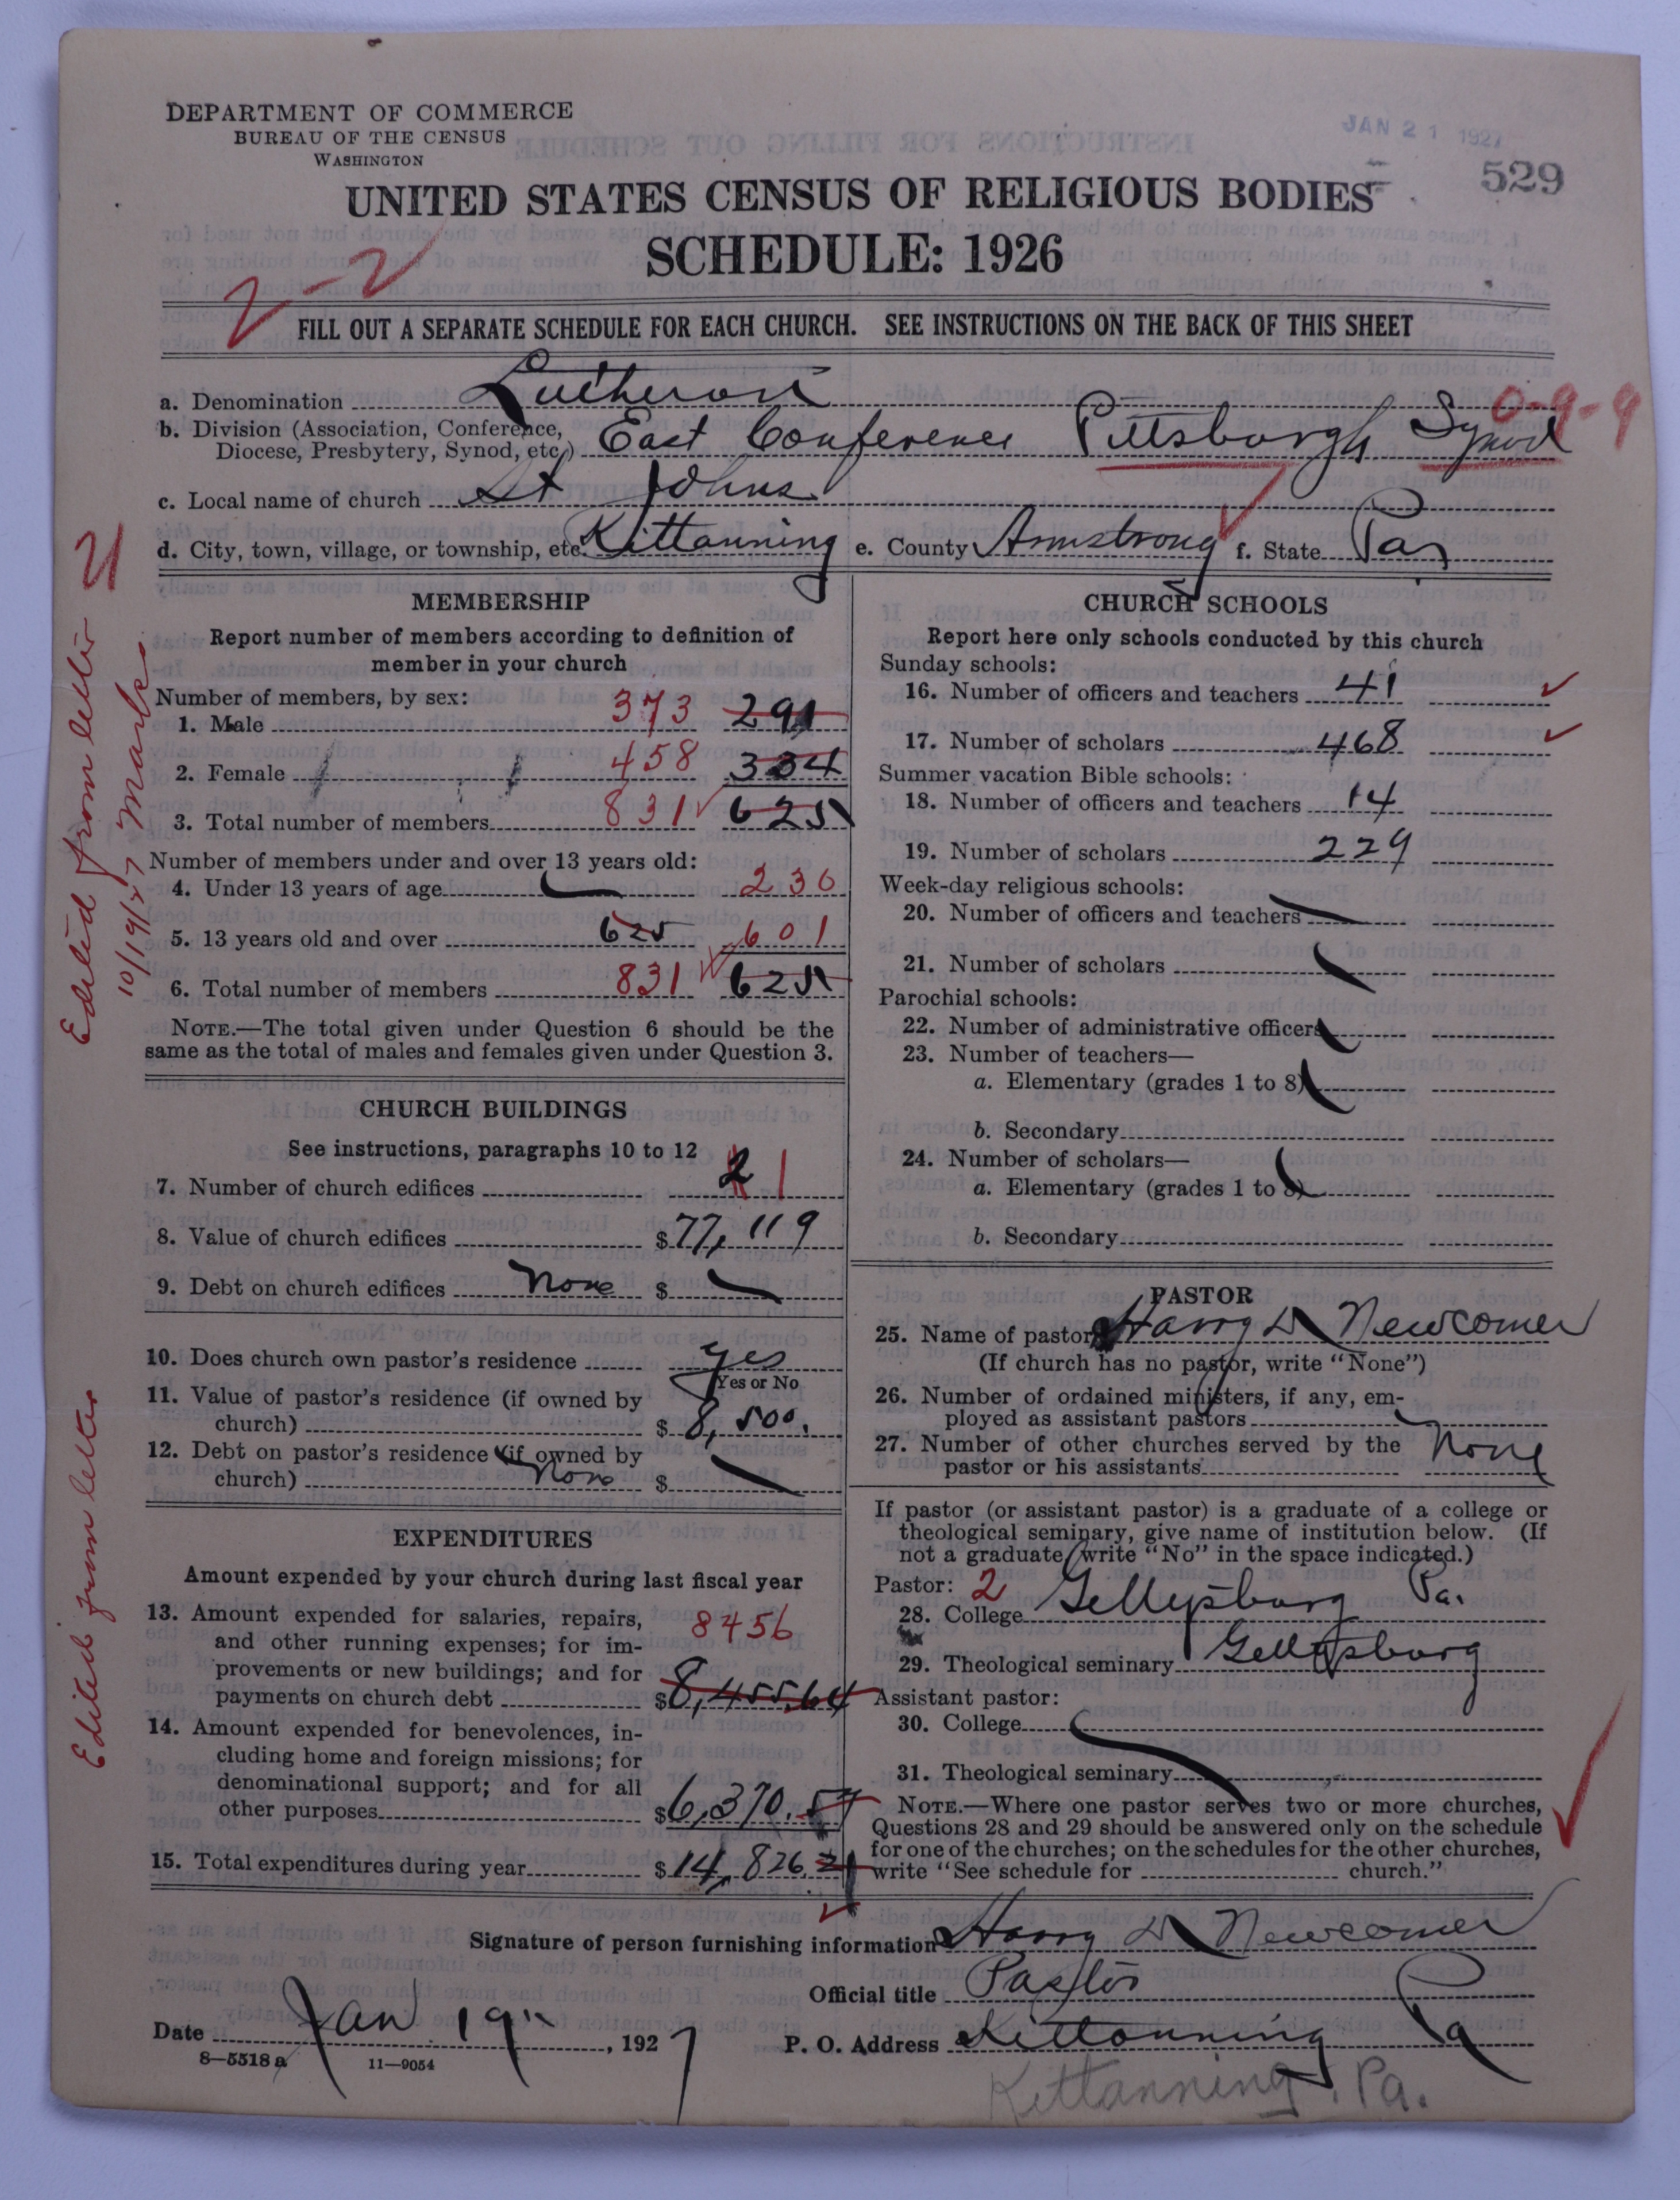 DEPARTMENT OF COMMERCE
BUREAU OF THE CENSUS
WASHINGTON
JAN 21 1927
529
UNITED STATES CENSUS OF RELIGIOUS BODIES
SCHEDULE: 1926
2-2
FILL OUT A SEPARATE SCHEDULE FOR EACH CHURCH. SEE INSTRUCTIONS ON THE BACK OF THIS SHEET
a. Denomination Lutheran
0-9-9
b. Division (Association, Conference, Diocese, Presbytery, Synod, etc.) East Conference Pittsburgh Synod
c. Local name of church St Johns
d. City, town, village, or township, etc. Kittanning e. County Armstrong f. State Pa
Edited from letter
10/19/27 Marks
MEMBERSHIP
Report number of members according to definition of
member in your church
Number of members, by sex:
1. Male 373 291
2. Female 458 334
3. Total number of members 831 625
Number of members under and over 13 years old:
4. Under 13 years of age 230
5. 13 years old and over 625 601
6. Total number of members 831 625
NOTE.—The total given under Question 6 should be the
same as the total of males and females given under Question 3.
CHURCH BUILDINGS
See instructions, paragraphs 10 to 12
7. Number of church edifices 2 1
8. Value of church edifices $77,119
9. Debt on church edifices None $
10. Does church own pastor's residence yes
Yes or No
11. Value of pastor's residence (if owned by
church) $8,500.
12. Debt on pastor's residence (if owned by
church) None $
Edited from letter
EXPENDITURES
Amount expended by your church during last fiscal year
13. Amount expended for salaries, repairs,
and other running expenses; for im-
provements or new buildings; and for
payments on church debt 8456 $8,455.64
14. Amount expended for benevolences, in-
cluding home and foreign missions; for
denominational support; and for all
other purposes $6,370.57
15. Total expenditures during year $14,826.21
CHURCH SCHOOLS
Report here only schools conducted by this church
Sunday schools:
16. Number of officers and teachers 41
17. Number of scholars 468
Summer vacation Bible schools:
18. Number of officers and teachers 14
19. Number of scholars 229
Week-day religious schools:
20. Number of officers and teachers
21. Number of scholars
Parochial schools:
22. Number of administrative officers
23. Number of teachers—
a. Elementary (grades 1 to 8)
b. Secondary
24. Number of scholars—
a. Elementary (grades 1 to 8)
b. Secondary
PASTOR
25. Name of pastor Harry D Newcomer
(If church has no pastor, write "None")
26. Number of ordained ministers, if any, em-
ployed as assistant pastors
27. Number of other churches served by the
pastor or his assistants None
If pastor (or assistant pastor) is a graduate of a college or
theological seminary, give name of institution below. (If
not a graduate, write "No" in the space indicated.)
Pastor: 2
28. College Gettysburg Pa.
29. Theological seminary Gettysburg
Assistant pastor:
30. College
31. Theological seminary
NOTE.—Where one pastor serves two or more churches,
Questions 28 and 29 should be answered only on the schedule
for one of the churches; on the schedules for the other churches,
write "See schedule for church."
Signature of person furnishing information Harry D Newcomer
Official title Pastor
Date Jan 19", 1927 P. O. Address Kittanning Pa
8-5518a 11-9054
Kittanning, Pa.